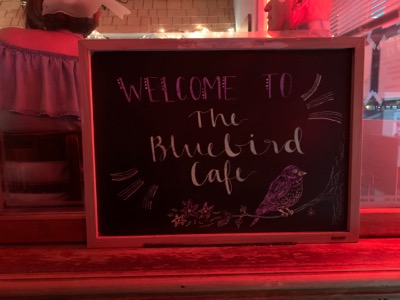 WELCOME TO
The
Bluebird
Cafe